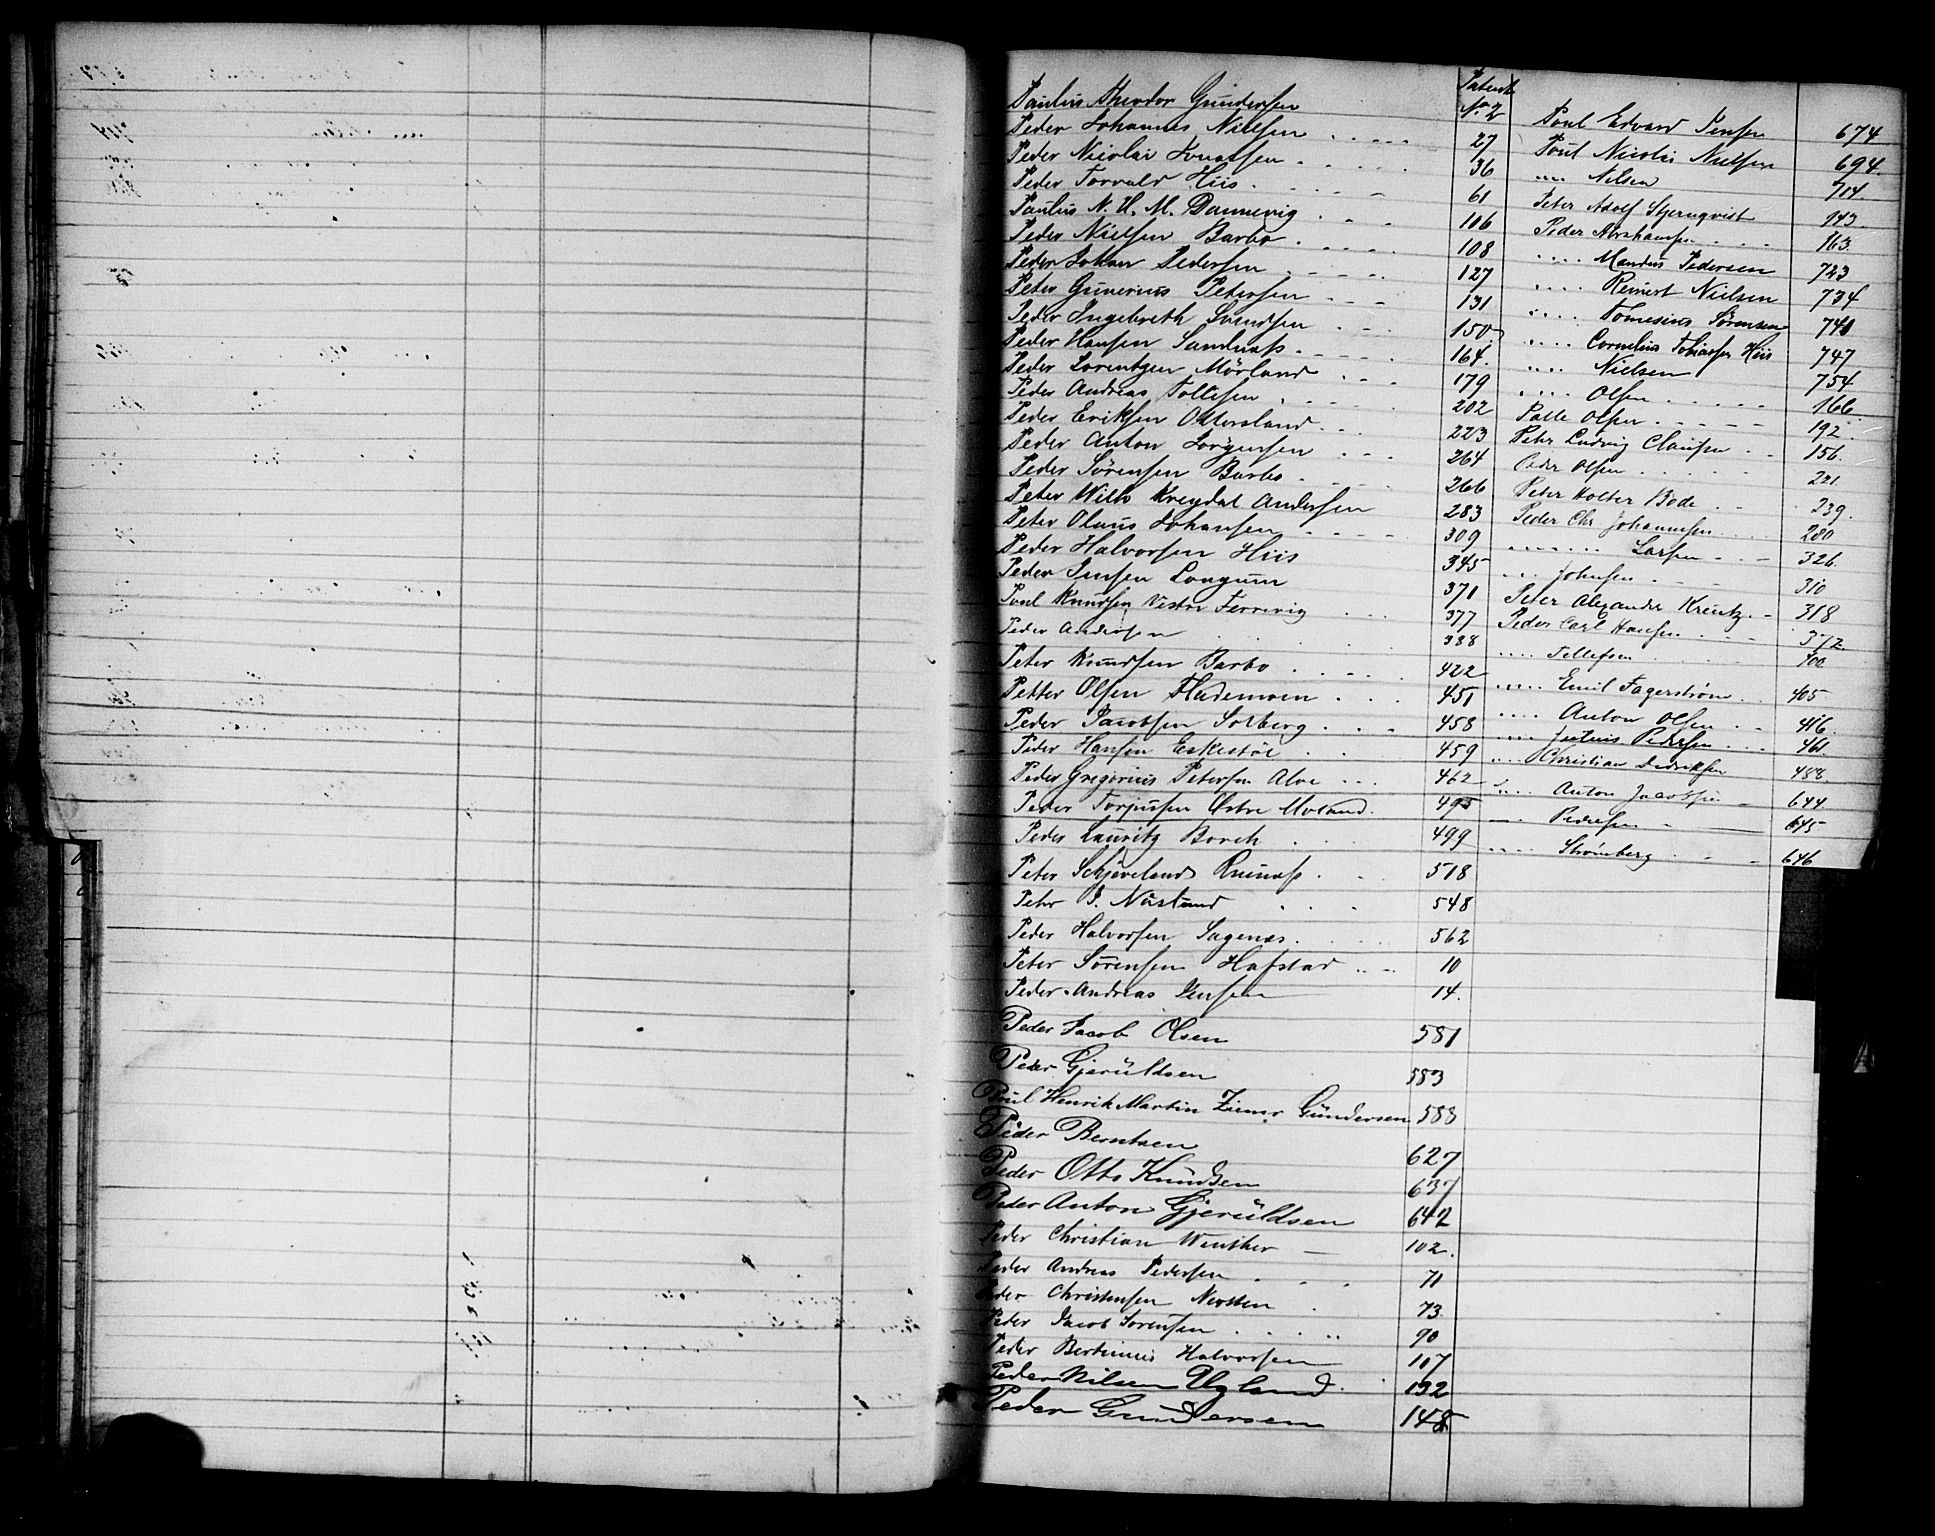 Patent
Paulus Theodor Gundersen No. 2
Peder Johannes Nielsen . . . . 27
Peder Nicolai Knudsen . . . . 36
Peder Torvald Hiis . . . . 61
Paulus N. U. M. Dannevig . . . 106
Peder Nielsen Barbo . . . . 108
Peder Johan Pedersen . . . . 127
Peter Gunerius Petersen . . . 131
Peder Ingebreth Svendsen . . . 150
Peder Hansen Sandnæs . . . . 164.
Peder Lorentzen Mörland . . . 179
Peder Andreas Tollefsen . . . . 202
Peder Eriksen Ottersland . . . 223
Peder Anton Jörgensen . . . 264
Peder Sörensen Barbo . . . . 266
Peter Wilh Kreydal Andersen 283
Peter Olaus Johansen . . . . 309
Peder Halvorsen Hiis 345
Peder Jensen Longum 371
Poul Knudsen Vestre Terrevig . . . 377
Peder Andersen . . . . 388
Peter Knudsen Barbo . . . . 422
Petter Olsen Flademoen . . . 451
Peder Jacobsen Solberg . . . . 458
Peder Hansen Eskestöl . . . 459
Peder Gregerius Petersen Alve . . . 462
Peder Torjussen Östre Moland . 495
Peder Lauritz Borch . . . 499
Peter Schjevelands Ruunæs . . . 518
Peter J. Näslund . . . 548
Peder Halvorsen Sagenes . . . . 562
Peter Sörensen Hafstad . . . . 10
Peder Andreas Jensen 14.
Peder Jacob Olsen 581
Peder Gjeruldsen 583
Poul Henrik Martin Ziemer Gündersen 588
Peder Berntsen 627
Peder Otto Knudsen 637
Peder Anton Gjeruldsen 642
Peder Christian Winther — 102.
Peder Andreas Pedersen . . . 71
Peder Christensen Nersten . 73
Peder Jacob Sørensen . . . . 90
Peder Bertinius Halvorsen 107
Peder Nilsen Ugland . 132
Peder Gundersen 148
Poul Edvard Jensen 674
Poul Nicolai Nielsen 694.
" " Nilsen 714.
Peter Adolf Stjernqvist 143.
Peder Abrahamsen . . . 163.
" " Mandus Pedersen 723
" " Reinert Nielsen 734
" " Tomesius Sørensen 741
" " Cornelius Tobiassen Hiis 747
" " Nielsen 754
" " Olsen . . . . . 166
Palle Olsen . . . . . 192.
Peter Ludvig Clausen . . 156.
Peder Olsen . . . . 221
Peter Holter Bode . . . 239.
Peder Chr Johannesen . . . 280
" " " Larsen . . . 326.
" " Johnsen . . . 310
Peter Alexander Kreutz . — 318
Peder Carl Hansen . . . 372
" " Tellefsen . . . 400
" " Emil Fagerstrøm . . 405
" " Anton Olsen . . 416.
" " Julius Pedersen . . . 461
" " Christian Didriksen 488
" " Anton Jacobsen — 644.
" " Pedersen — 645
" " Strømberg . . — 646